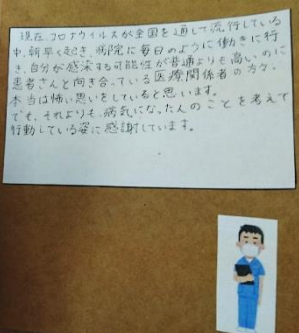 現在、コロナウイルスが全国を通して流行している
中、朝早く起き、病院に毎日のように働きに行
き、自分が感染する可能性が普通よりも高いのに
患者さんと向き合っている医療関係者の方々、
本当は怖い思いをしていると思います。
でも、それよりも、病気になった人のことを考えて
行動している姿に感謝しています。